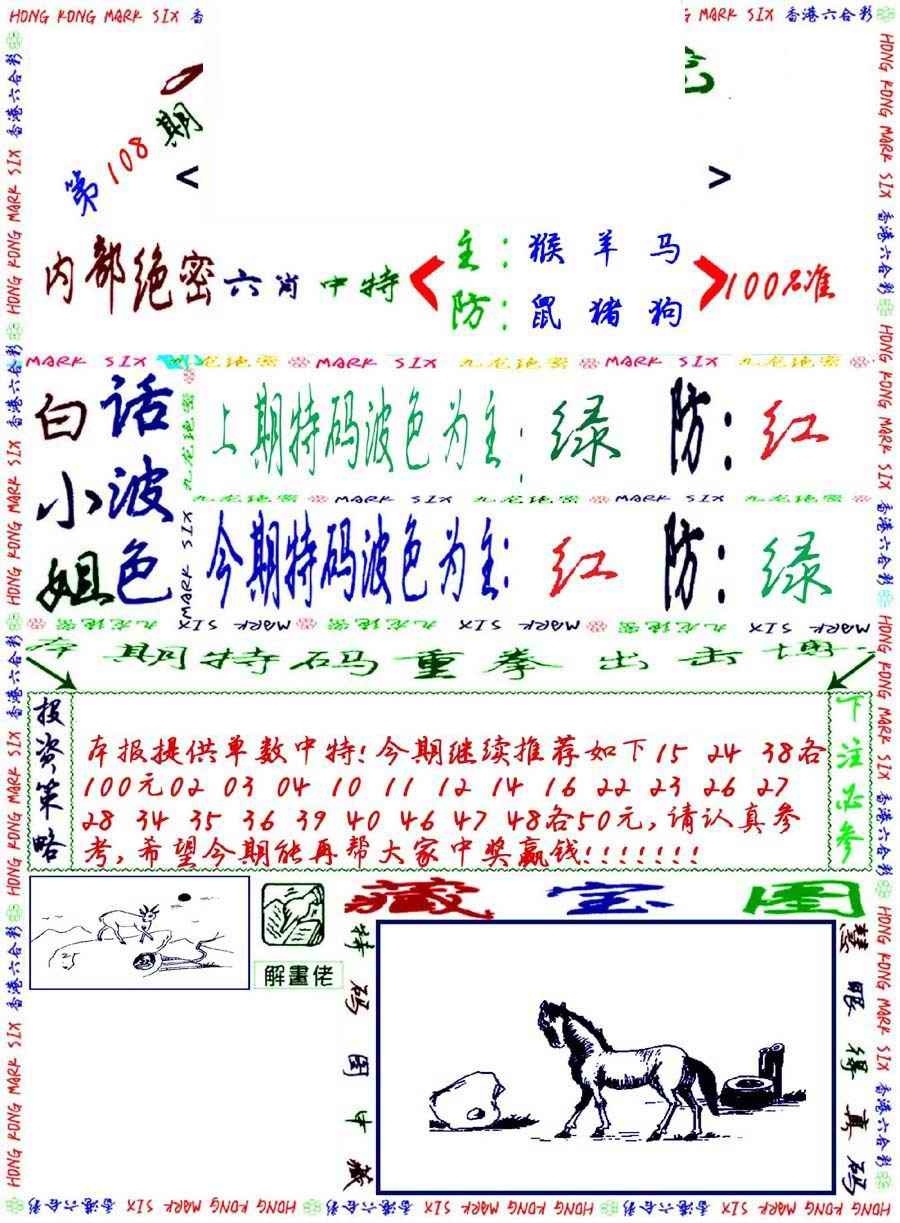 HONG KONG MARK SIX 香
MARK SIX 香港六合彩
第108期
< >
内部绝密六肖中特
主：猴 羊 马
防：鼠 猪 狗
100%准
MARK SIX 九龙绝密 MARK SIX 九龙绝密 MARK SIX 九龙绝密
白话
小波
姐色
上期特码波色为主：绿 防：红
九龙绝密 MARK SIX 九龙绝密 MARK SIX 九龙绝密
今期特码波色为主：红 防：绿
九龙绝密 MARK SIX 九龙绝密 MARK SIX 九龙绝密 MARK SIX
本期特码重拳出击
投资策略
本报提供单数中特！今期继续推荐如下15 24 38各
100元02 03 04 10 11 12 14 16 22 23 26 27
28 34 35 36 39 40 46 47 48各50元，请认真参
考，希望今期能再帮大家中奖赢钱！！！！！！！
下注必参
解畫佬
藏宝图
特码图中藏
慧眼得真码
HONG KONG MARK SIX 香港六合彩 HONG KONG MARK SIX 香港六合彩 HONG KONG MARK SIX 香港六合彩